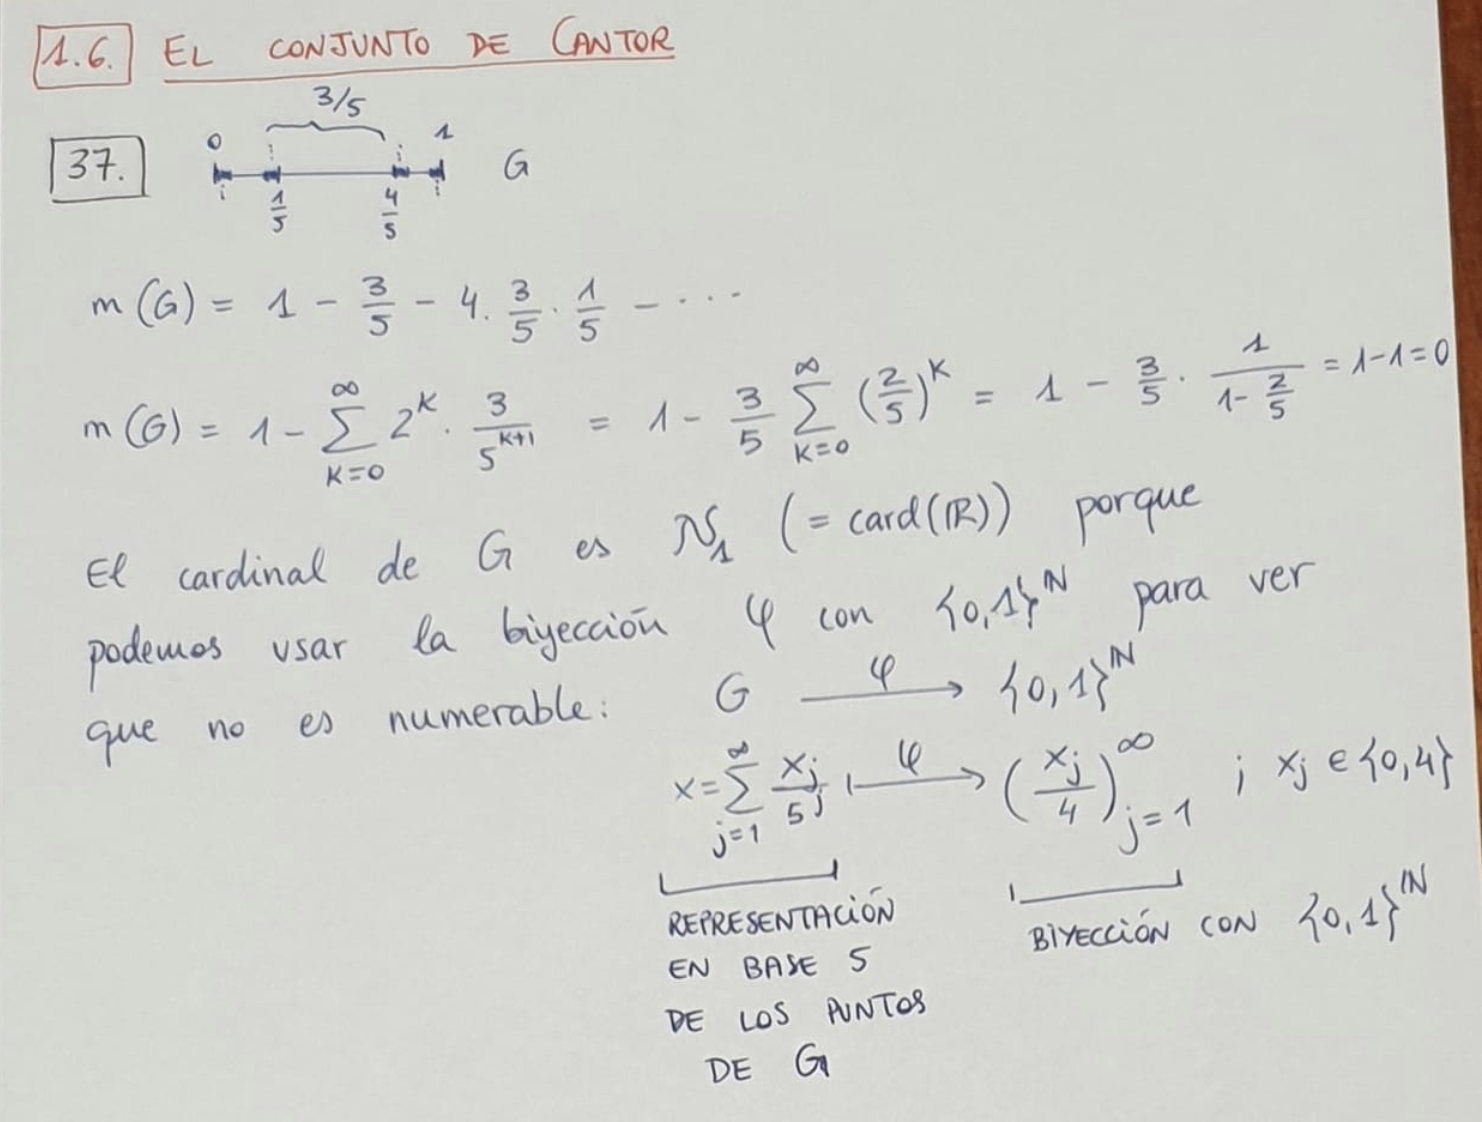 1.6. EL CONJUNTO DE CANTOR
37. 0 3/5 1 G
1/5 4/5
m(G) = 1 - 3/5 - 4 · 3/5 · 1/5 - ···
m(G) = 1 - ∑_{k=0}^{∞} 2^k · 3/5^{k+1} = 1 - 3/5 ∑_{k=0}^{∞} (2/5)^k = 1 - 3/5 · 1/(1 - 2/5) = 1-1=0
El cardinal de G es ℵ₁ (= card(ℝ)) porque
podemos usar la biyección φ con {0,1}^ℕ para ver
que no es numerable: G —φ→ {0,1}^ℕ
x = ∑_{j=1}^{∞} x_j/5^j |—φ→ (x_j/4)_{j=1}^{∞} ; x_j ∈ {0,4}
REPRESENTACIÓN
EN BASE 5
DE LOS PUNTOS
DE G
BIYECCIÓN CON {0,1}^ℕ